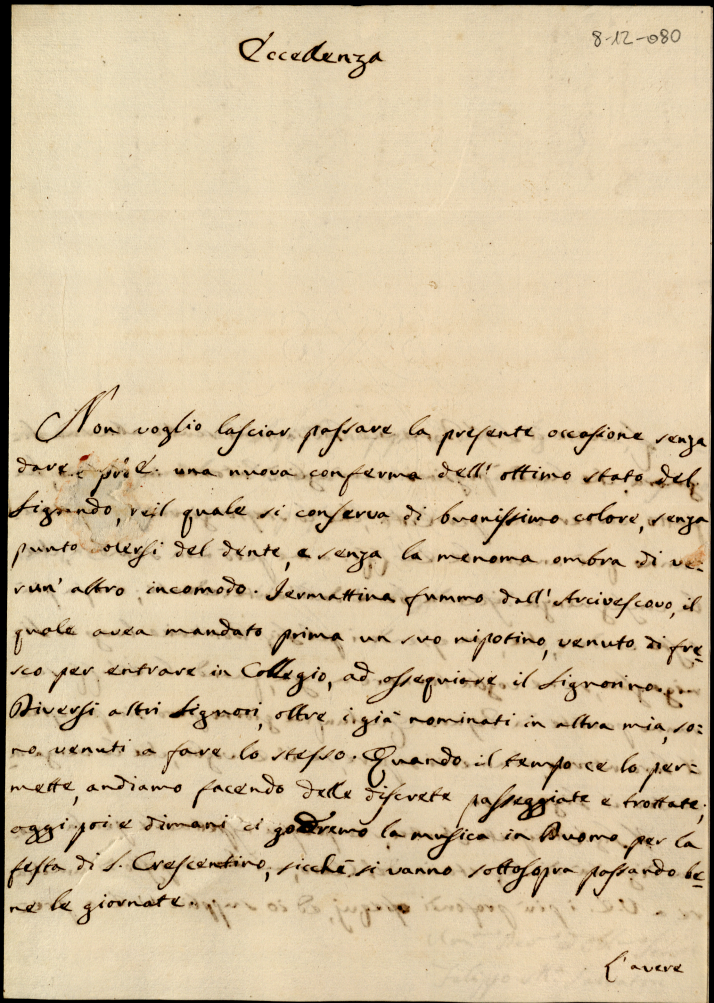 8-12-080
Eccellenza
Non voglio lasciar passare la presente occasione senza
dare una nuova conferma dell' ottimo stato del
il quale si conserva di buonissimo colore, senza
punto del dente, e senza la menoma ombra di ve=
run' altro incomodo. Jermattina fummo dall' Arcivescovo, il
quale avea mandato prima un suo nipotino, venuto di fre=
sco per entrare in Collegio, ad ossequiare il Signorino.
Diversi altri Signori, oltre i già nominati in altra mia, so=
no venuti a fare lo stesso. Quando il tempo ce lo per=
mette, andiamo facendo delle discrete passeggiate e trottate;
oggi poi e dimani ci godremo la musica in Duomo per la
festa di S. Crescentino, sicchè si vanno sottosopra passando be=
ne le giornate.
L'avere